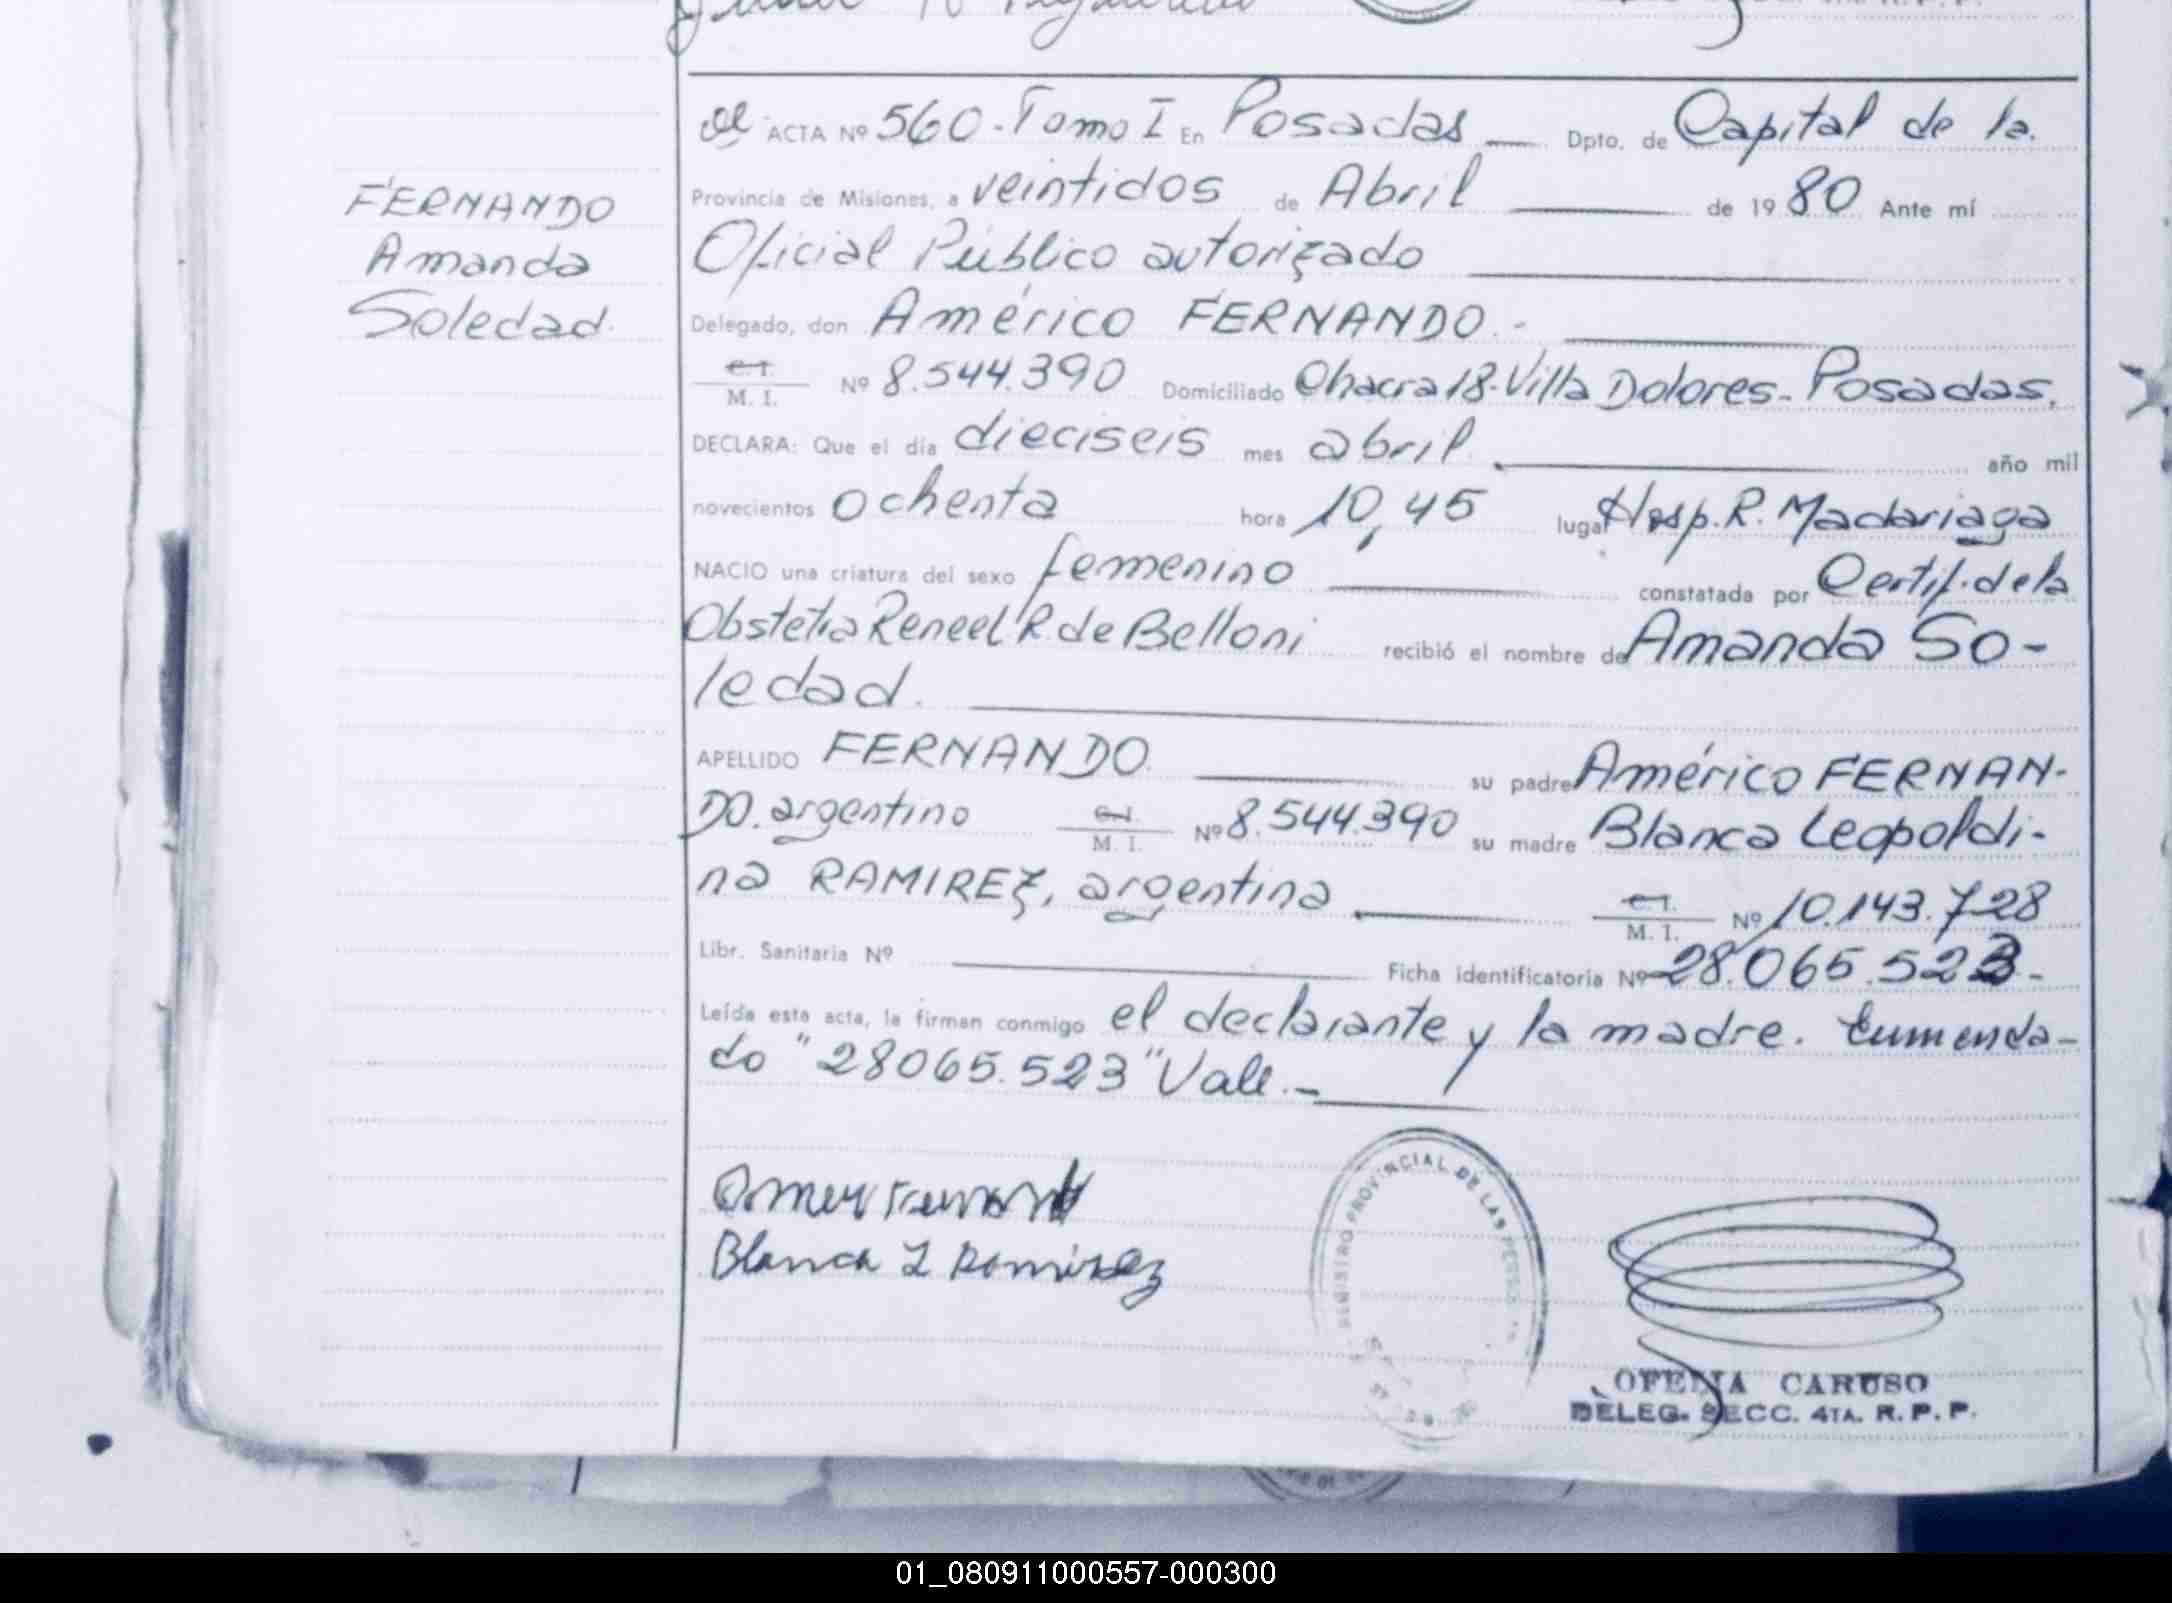 FERNANDO
Amanda
Soledad.
ACTA Nº 560-Tomo I En Posadas Dpto. de Capital de la
Provincia de Misiones, a veintidos de Abril de 1980 Ante mí
Oficial Público autorizado
Delegado, don Américo FERNANDO.-
C. I.
M. I. Nº 8.544.390 Domiciliado Chacra 18-Villa Dolores-Posadas.
DECLARA: Que el día dieciseis mes abril año mil
novecientos ochenta hora 10,45 lugar Hosp. R. Madariaga
NACIO una criatura del sexo femenino constatada por Certif. de la
Obstetra Reneel R. de Belloni recibió el nombre de Amanda So-
ledad.
APELLIDO FERNANDO su padre Américo FERNAN-
DO. argentino C. I. M. I. Nº 8.544.390 su madre Blanca Leopoldi-
na RAMIREZ, argentina C. I. M. I. Nº 10.143.728
Libr. Sanitaria Nº Ficha identificatoria Nº 28.065.523-
Leída esta acta, la firman conmigo el declarante y la madre. Enmenda-
do "28065.523" Vale.-
Blanca L Ramirez
REGISTRO PROVINCIAL DE LAS PERSONAS
OFELIA CARUSO
DELEG. SECC. 4TA. R. P. P.
01_080911000557-000300